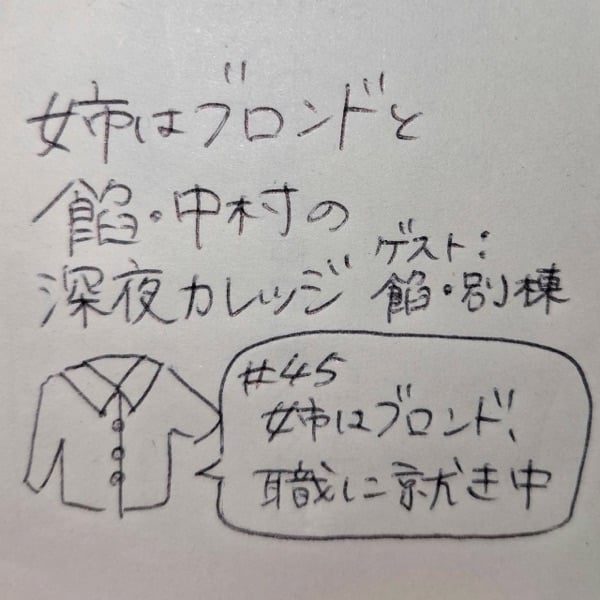 姉はブロンドと
餡・中村の
深夜カレッジ
ゲスト:
餡・別棟
#45
姉はブロンド、
職に就き中